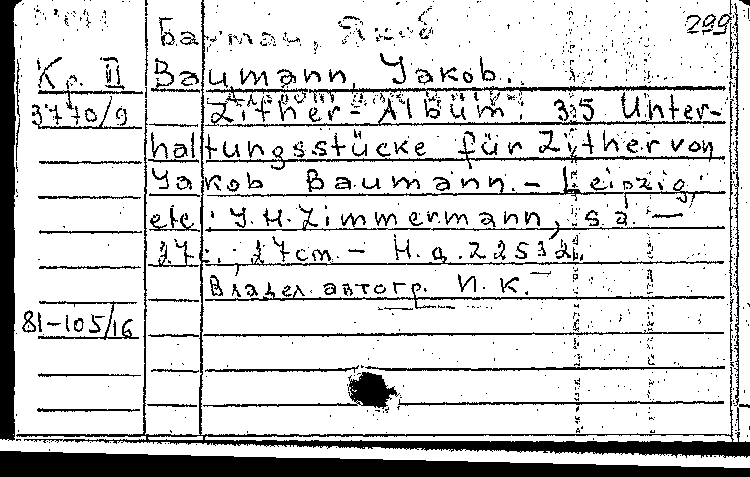 299
Бауман, Якоб
Кр. II Baumann, Jakob.
3770/9 Zither-Album. 35 Unter-
haltungsstücke für Zither von
Jakob Baumann. - Leipzig,
etc: J. H. Zimmermann, s.a. —
27с.; 27cm. - Н.д. 22532.
Владел. автогр. И. К.
81-105/16